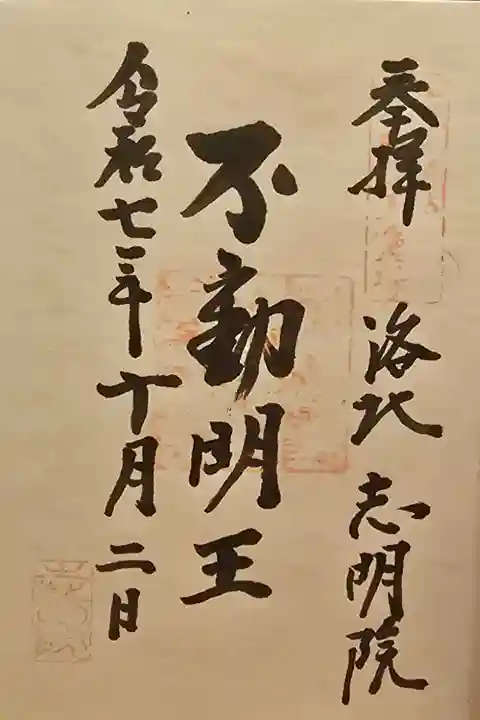 奉拝 洛北 志明院
不動明王
令和七年十月二日